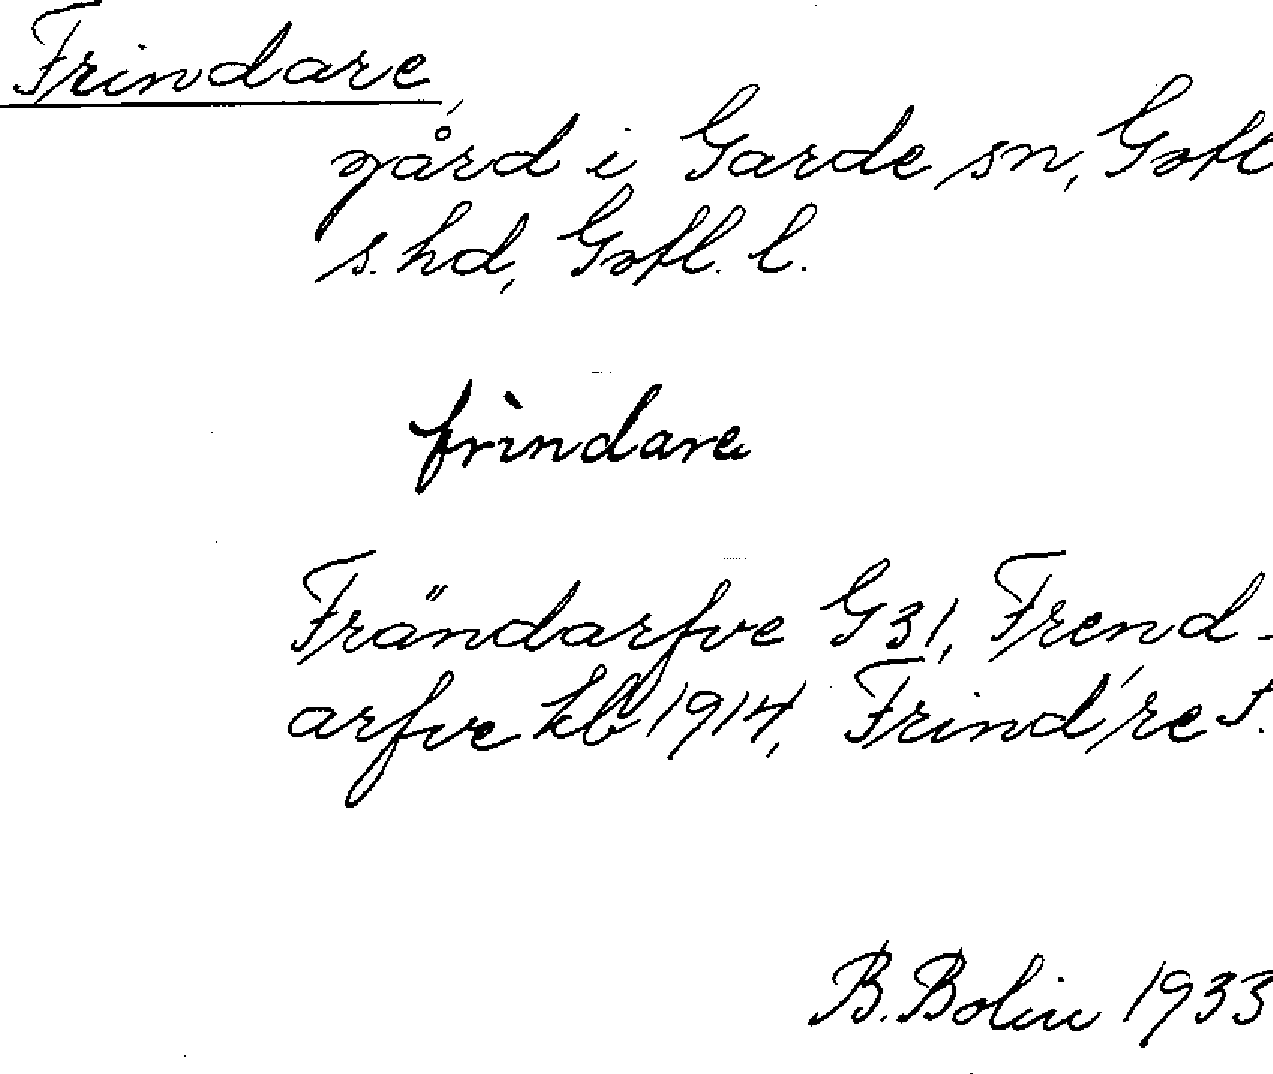 Frindare,
gård i Garde sn, Gotl
s. hd, Gotl. l.
frìndare
Frändarfve G 31, Frend-
arfve kb 1914, Frind're J.
B. Bolin 1933